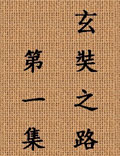 玄奘之路
第一集